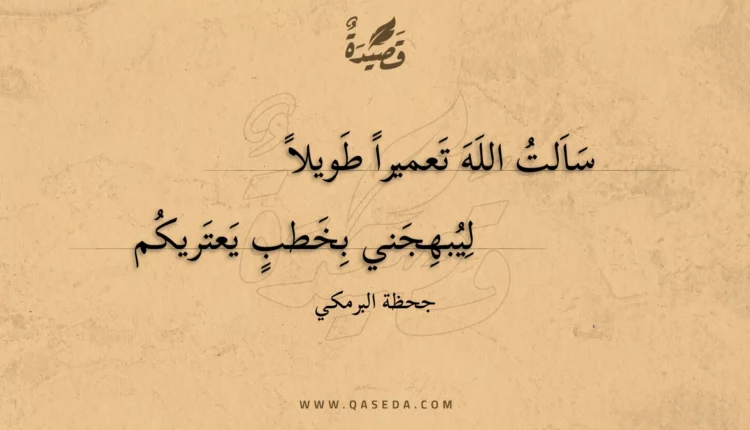 قَصِيْدَةٌ
سَاَلتُ اللَهَ تَعميراً طَويلاً
لِيُبهِجَني بِخَطبٍ يَعتَريكُم
جحظة البرمكي
WWW.QASEDA.COM